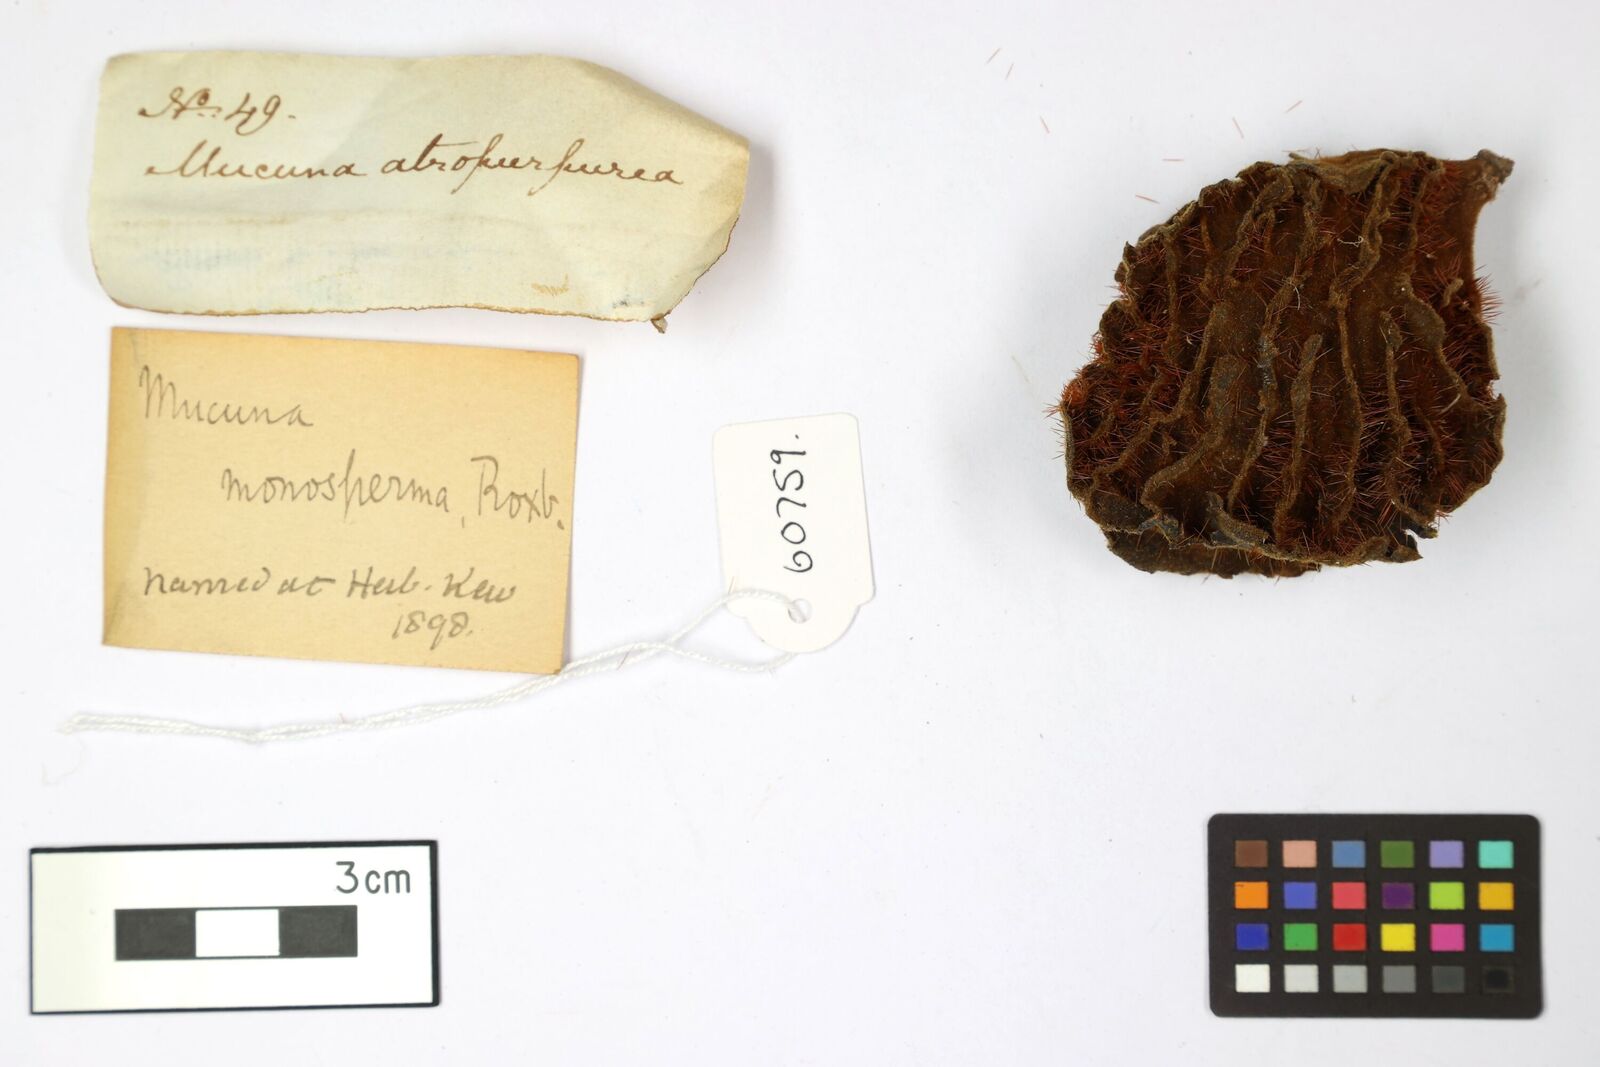 No. 49.
Mucuna atropurpurea
Mucuna
monosperma, Roxb.
named at Herb. Kew
1898.
60759.
3cm